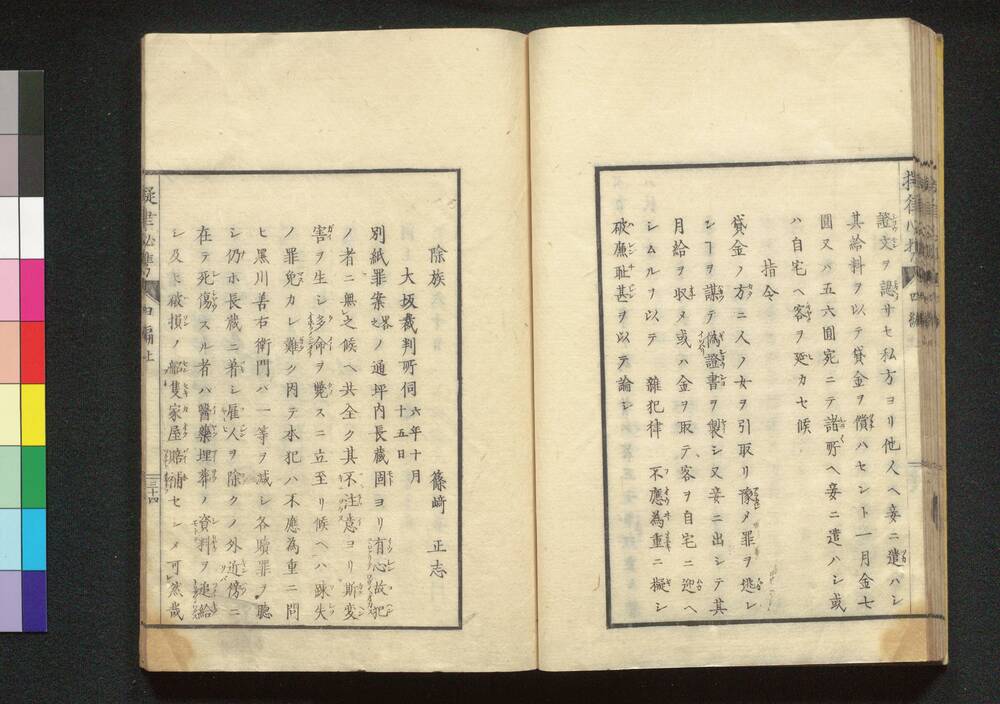 證文ヲ認サセ私方ヨリ他人ヘ妾ニ遣ハシ
其給料ヲ以テ貸金ヲ償ハセント一月金七
圓又ハ五六圓宛ニテ諸所ヘ妾ニ遣ハシ或
ハ自宅ヘ客ヲ延カセ候
指令
貸金ノ方ニ人ノ女ヲ引取リ豫メ罪ヲ逃レ
ンヿヲ謀テ偽證書ヲ製シ又妾ニ出シテ其
月給ヲ収メ或ハ金ヲ取テ客ヲ自宅ニ迎ヘ
シムルヲ以テ 雜犯律 不應為重ニ擬シ
破廉耻甚ヲ以テ論シ
除族 篠﨑正志
大坂裁判所伺 六年十月十五日
別紙罪案畧之ノ通坪内長蔵固ヨリ有心故犯
ノ者ニ無之候ヘ共全ク其不注意ヨリ斯変
害ヲ生シ多命ヲ斃スニ立至リ候ヘハ踈失
ノ罪免カレ難ク因テ本犯ハ不應為重ニ問
ヒ黒川善右衛門ハ一等ヲ减シ各贖罪ヲ聴
シ仍ホ長蔵ニ着シ雇人ヲ除クノ外近傍ニ
在テ死傷スル者ハ醫藥埋葬ノ資料ヲ追給
シ及ヒ破損ノ船隻家屋賠補セシメ可然哉
擬律必携 四編上
三十四